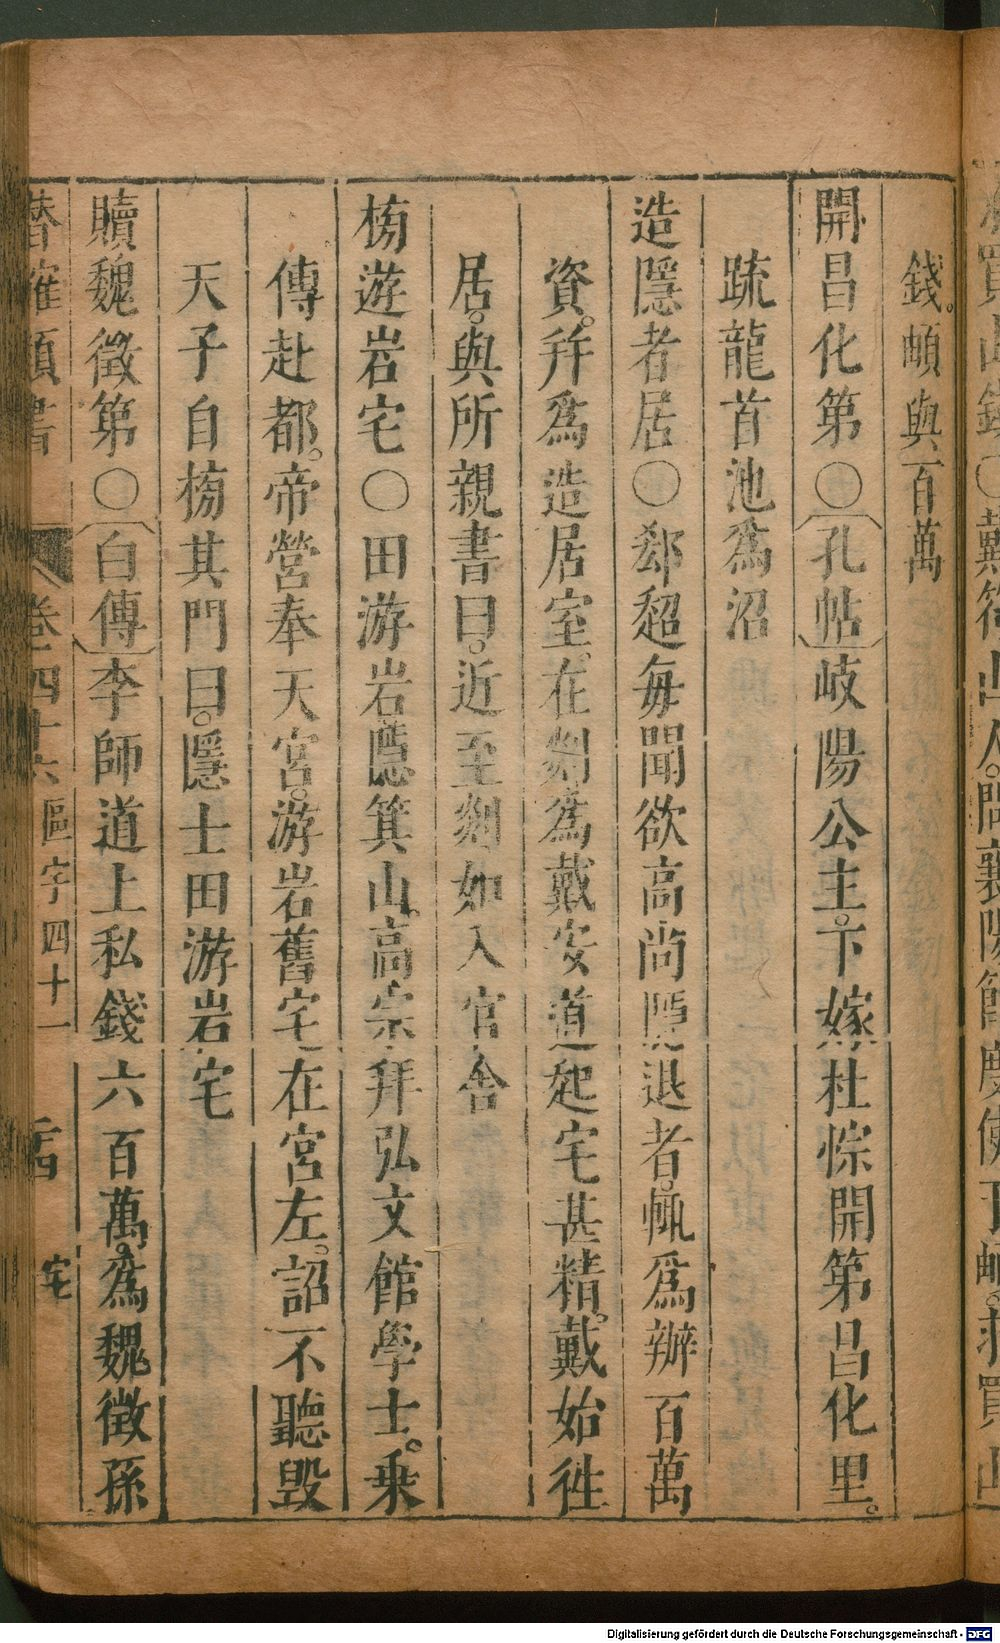 錢。頔與百萬
開昌化第〇孔帖岐陽公主。下嫁杜悰開第昌化里。
疏龍首池爲沼
造隱者居〇郄超每聞欲高尚隱退者。輒爲辦百萬
資。并爲造居室。在剡爲戴安道起宅甚精。戴始徃
居。與所親書曰。近至剡如入官舍
榜遊岩宅〇田游岩隱箕山。高宗拜弘文館學士。乗
傳赴都。帝營奉天宮。游岩舊宅在宮左。詔不聽毁
天子自榜其門曰。隱士田游岩宅
贖魏徵第〇白傳李師道上私錢六百萬。爲魏徵孫
卷四十六 區字四十一 宅
買山錢〇戴符山人。問襄陽節度使于頔。求買山
Digitalisierung gefördert durch die Deutsche Forschungsgemeinschaft - DFG